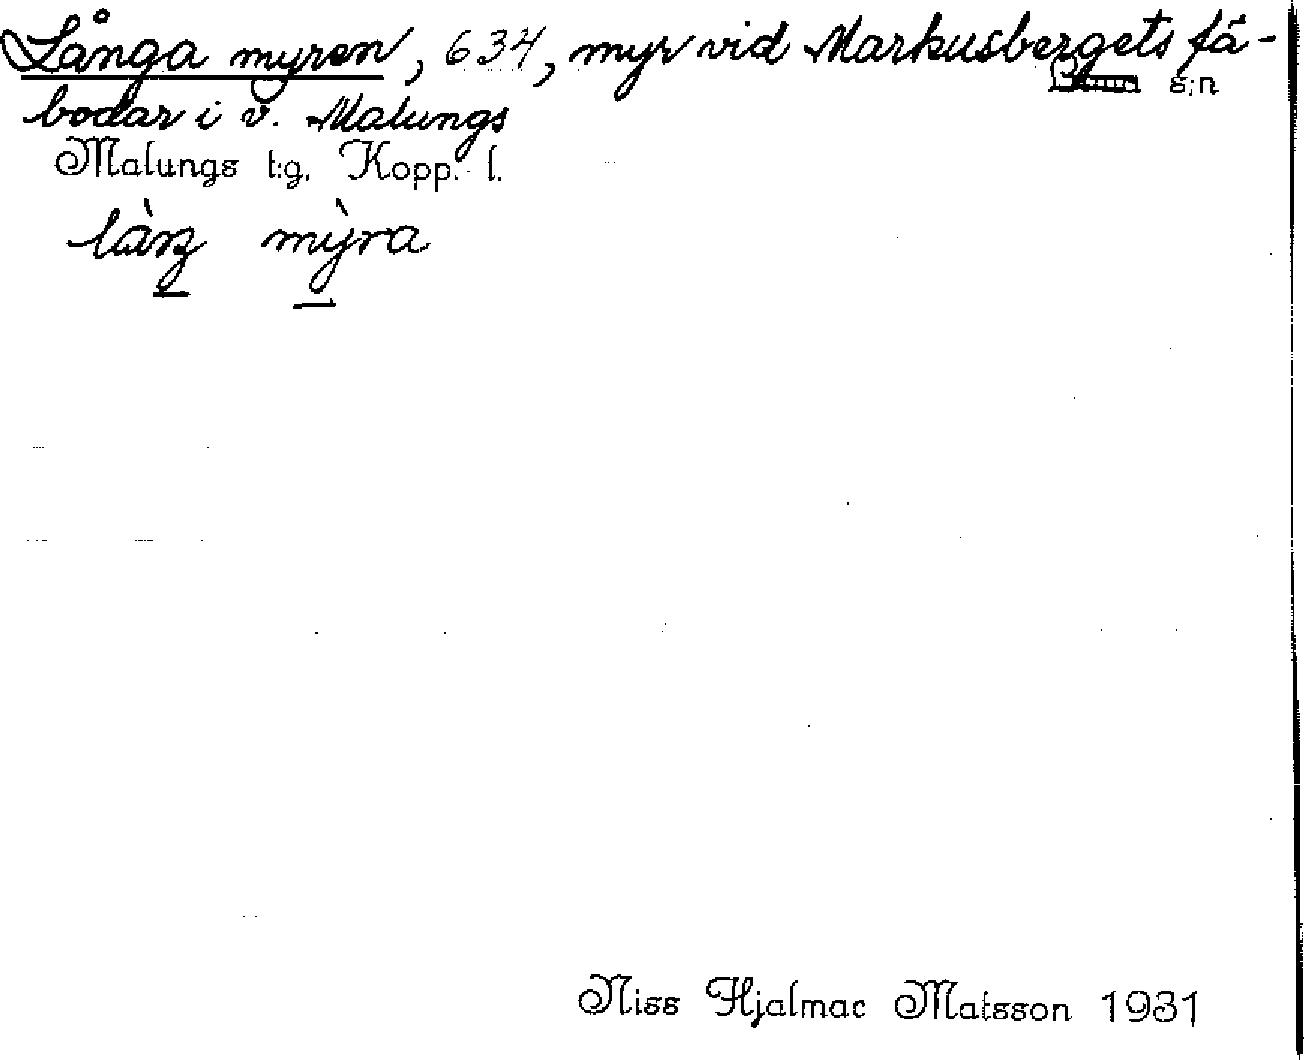 Långa myren, 634, myr vid Markusbergets fä-
s:n
bodar i v. Malungs
Malungs t:g. Kopp. l.
làŋ mỳra
Niss Hjalmar Matsson 1931